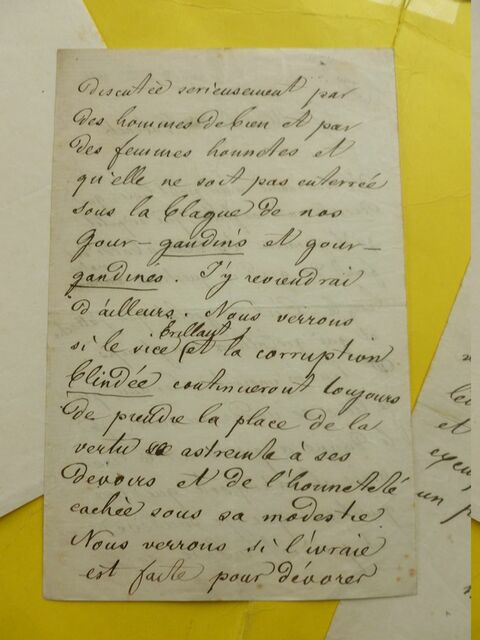 discutée serieusement par
des hommes de bien et par
des femmes honnetes et
qu'elle ne soit pas enterrée
sous la blague de nos
gour-gandins et gour-
gandines. J'y reviendrai
d'ailleurs. Nous verrons
brillant
si le vice et la corruption
blindée continueront toujours
de prendre la place de la
vertu astreinte à ses
devoirs et de l'honneteté
cachée sous sa modestie
Nous verrons si l'ivraie
est faite pour dévorer
et
un